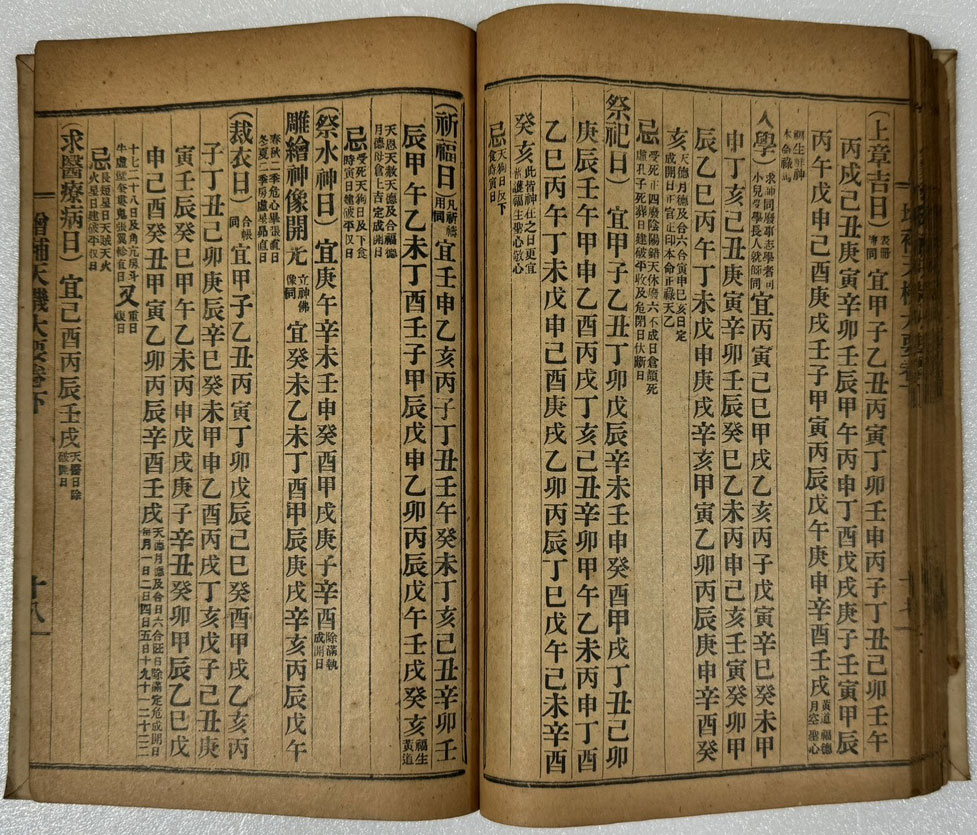 (上章吉日) 表冊專同 宜甲子乙丑丙寅丁卯壬申丙子丁丑己卯壬午
丙戌己丑庚寅辛卯壬辰甲午丙申丁酉戊戌庚子壬寅甲辰
丙午戊申己酉庚戌壬子甲寅丙辰戊午庚申辛酉壬戌 黃道福德月空聖心
入學) 求神同廢事志學者同小兒及學長人就師同 宜丙寅己巳甲戌乙亥丙子戊寅辛巳癸未甲
申丁亥庚寅辛卯壬辰癸巳乙未丙申己亥壬寅癸卯甲
辰乙巳丙午丁未戊申庚戌辛亥甲寅乙卯丙辰庚申辛酉癸
亥 天德月德及合六合寅申巳亥日定成開日
忌 受死正四廢陰陽錯天休廢六不成日
祭祀日) 宜甲子乙丑丁卯戊辰辛未壬申癸酉甲戌丁丑己卯
庚辰壬午甲申乙酉丙戌丁亥己丑辛卯甲午乙未丙申丁酉
乙巳丙午丁未戊申己酉庚戌乙卯丙辰丁巳戊午己未辛酉
癸亥 此皆神在之日更宜普護福生聖心敬心
忌 天狗日及下食時寅日
(祈福日) 凡祈禱用同 宜壬申乙亥丙子丁丑壬午癸未丁亥己丑辛卯壬
辰甲午乙未丁酉壬子甲辰戊申乙卯丙辰戊午壬戌癸亥 福生黃道
天恩天赦天德及合福德月德母倉上吉定成開日
忌 受死天狗日及下食時寅日建破平收日
(祭水神日) 宜庚午辛未壬申癸酉甲戌庚子辛酉 除滿執成開日
雕繪神像開光 立神佛像同 宜癸未乙未丁酉甲辰庚戌辛亥丙辰戊午
春秋二季危心畢張直日冬夏二季房虛星昴直日
(裁衣日) 合帳同 宜甲子乙丑丙寅丁卯戊辰己巳癸酉甲戌乙亥丙
子丁丑己卯庚辰辛巳癸未甲申乙酉丙戌丁亥戊子己丑庚
寅壬辰癸巳甲午乙未丙申戊戌庚子辛丑癸卯甲辰乙巳戊
申己酉癸丑甲寅乙卯丙辰辛酉壬戌 天德月德及合日六合旺日除滿定危成開日每月一日二日四日五日十九十一二十三二
十七二十八日及角亢房斗牛虛壁奎婁鬼張翼軫直日 又 重日復日
忌 長短星日天賊天火火星日建破平收日
(求醫療病日) 宜己酉丙辰壬戌 天醫日除破開日
增補天機大要卷下
十八